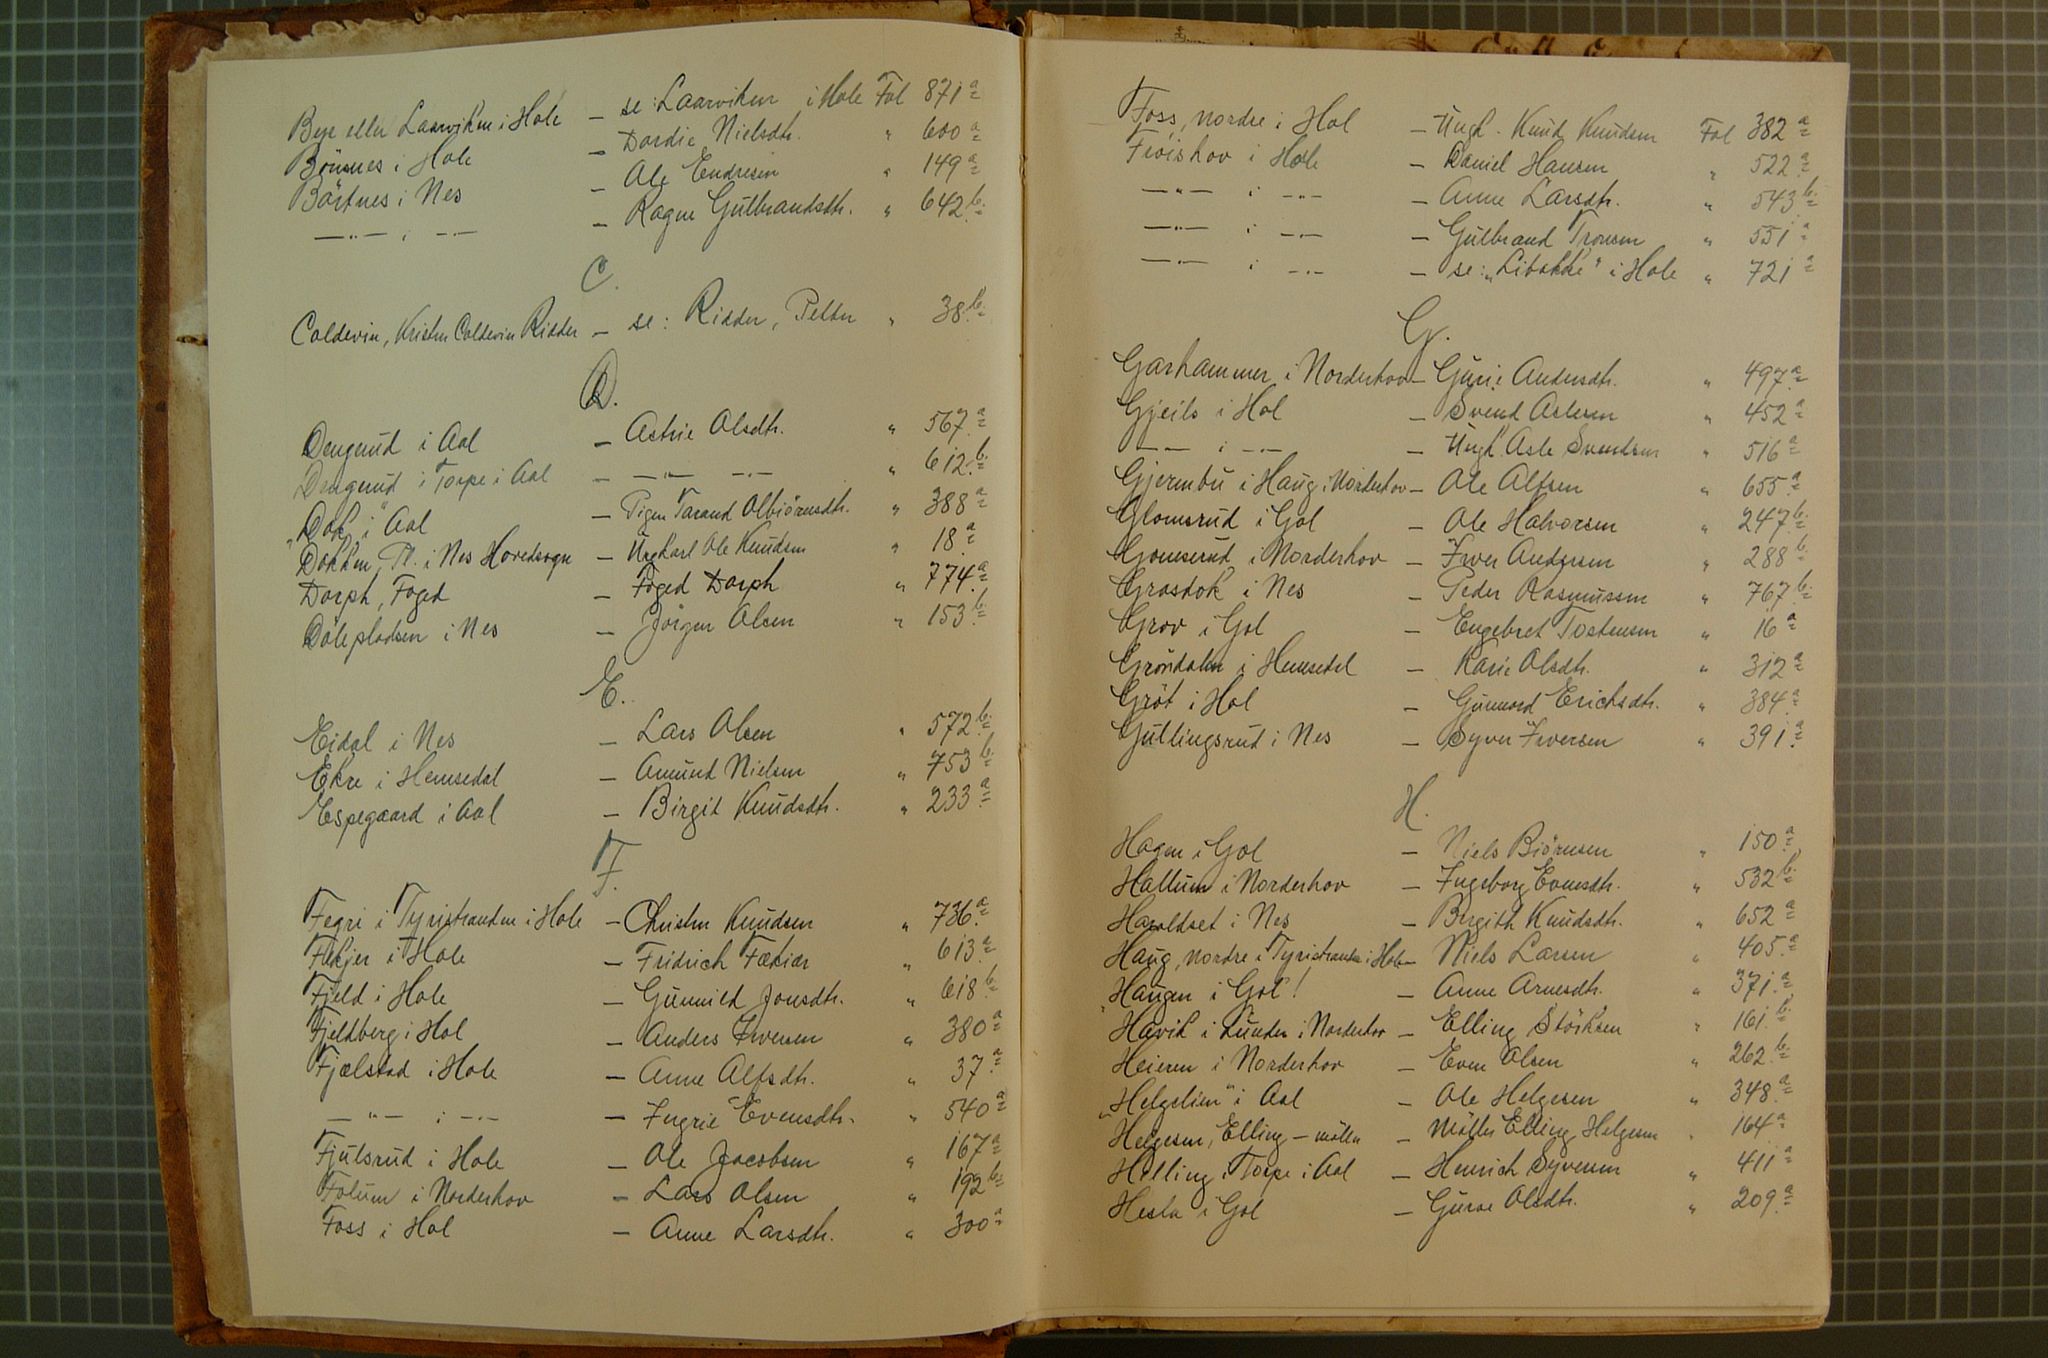 Bye eller Laarviken i Hole – se: Laarviken i Hole Fol 871 a
Bönsnes i Hole – Dordie Nielsdtr. " 600 a
Börtnes i Nes – Ole Endresen " 149 a
—"— i —"— – Ragne Gulbrandsdtr. " 642 b.
C.
Coldevin, Kristen Coldevin Ridder – se: Ridder, Petter " 38 b.
D.
Dengerud i Aal – Astrie Olsdtr. " 567 a
Dengerud i Torpe i Aal – —"— —"— " 612 b.
"Dok" i Aal – Pigen Tarand Olbiörnsdtr. " 388 a
Dokken, Pl. i Nes Hovedsogn – Ungkarl Ole Knudsen " 18 a
Dorph, Foged – Foged Dorph " 774 a
Döleplodsen i Nes – Jörgen Olsen " 153 b.
E.
Eidal i Nes – Lars Olsen " 572 b.
Ekre i Hemsedal – Amund Nielsen " 753 b
Espegaard i Aal – Birgit Knudsdtr. " 233 a
F.
Fegri i Tyristranden i Hole – Christen Knudsen " 736 a
Fekjer i Hole – Fridrich Fækiær " 613 a
Fjeld i Hole – Gunnild Jonsdtr. " 618 b
Fjeldberg i Hol – Anders Iversen " 380 a
Fjælstad i Hole – Anne Alfsdtr. " 37 a
—"— i —"— – Ingrie Evensdtr. " 540 a
Fjulsrud i Hole – Ole Jacobsen " 167 a
Folum i Norderhov – Lars Olsen " 192 b
Foss i Hol – Anne Larsdtr. " 300 a
Foss, nordre i Hol – Ungk. Knud Knudsen Fol 382 a
Fröishov i Hole – Daniel Hansen " 522 a
—"— i —"— – Anne Larsdtr. " 543 b.
—"— i —"— – Gulbrand Tronsen " 551 a
—"— i —"— – se: "Libakke" i Hole " 721 a
G.
Garhammer i Norderhov – Gurie Andersdtr. " 497 a
Gjeilo i Hol – Svend Aslesen " 452 a
—"— i —"— – Ungk. Asle Svendsen " 516 a
Gjermbu i Haug i Norderhov – Ole Alfsen " 655 a
Glomsrud i Gol – Ole Halvorsen " 247 b.
Gomserud i Norderhov – Iver Andersen " 288 b.
Grosdok i Nes – Peder Rasmussen " 767 b.
Grov i Gol – Engebret Tostensen " 16 a
Gröndalen i Hemsedal – Karie Olsdtr. " 312 a
Gröt i Hol – Gunnord Erichsdtr. " 384 a
Gullingsrud i Nes – Syver Iversen " 391 a
H.
Hagen i Gol – Niels Biörnsen " 150 a
Hallum i Norderhov – Ingeborg Evensdtr. " 532 b.
Haraldset i Nes – Birgith Knudsdtr. " 652 a
Haug, nordre i Tyristranden i Hole – Niels Larsen " 405 a
Haugen i Gol! – Anne Arnesdtr. " 371 a
"Havik i Lunder i Norderhov – Elling Störksen " 161 b.
Heieren i Norderhov – Even Olsen " 262 b.
"Helgelien" i Aal – Ole Helgesen " 348 a
Helgesen, Elling – möller – Möller Elling Helgesen " 164 a
Helling i Torpe i Aal – Henrich Syversen " 411 a
Hesla i Gol – Guroe Olsdtr. " 209 a